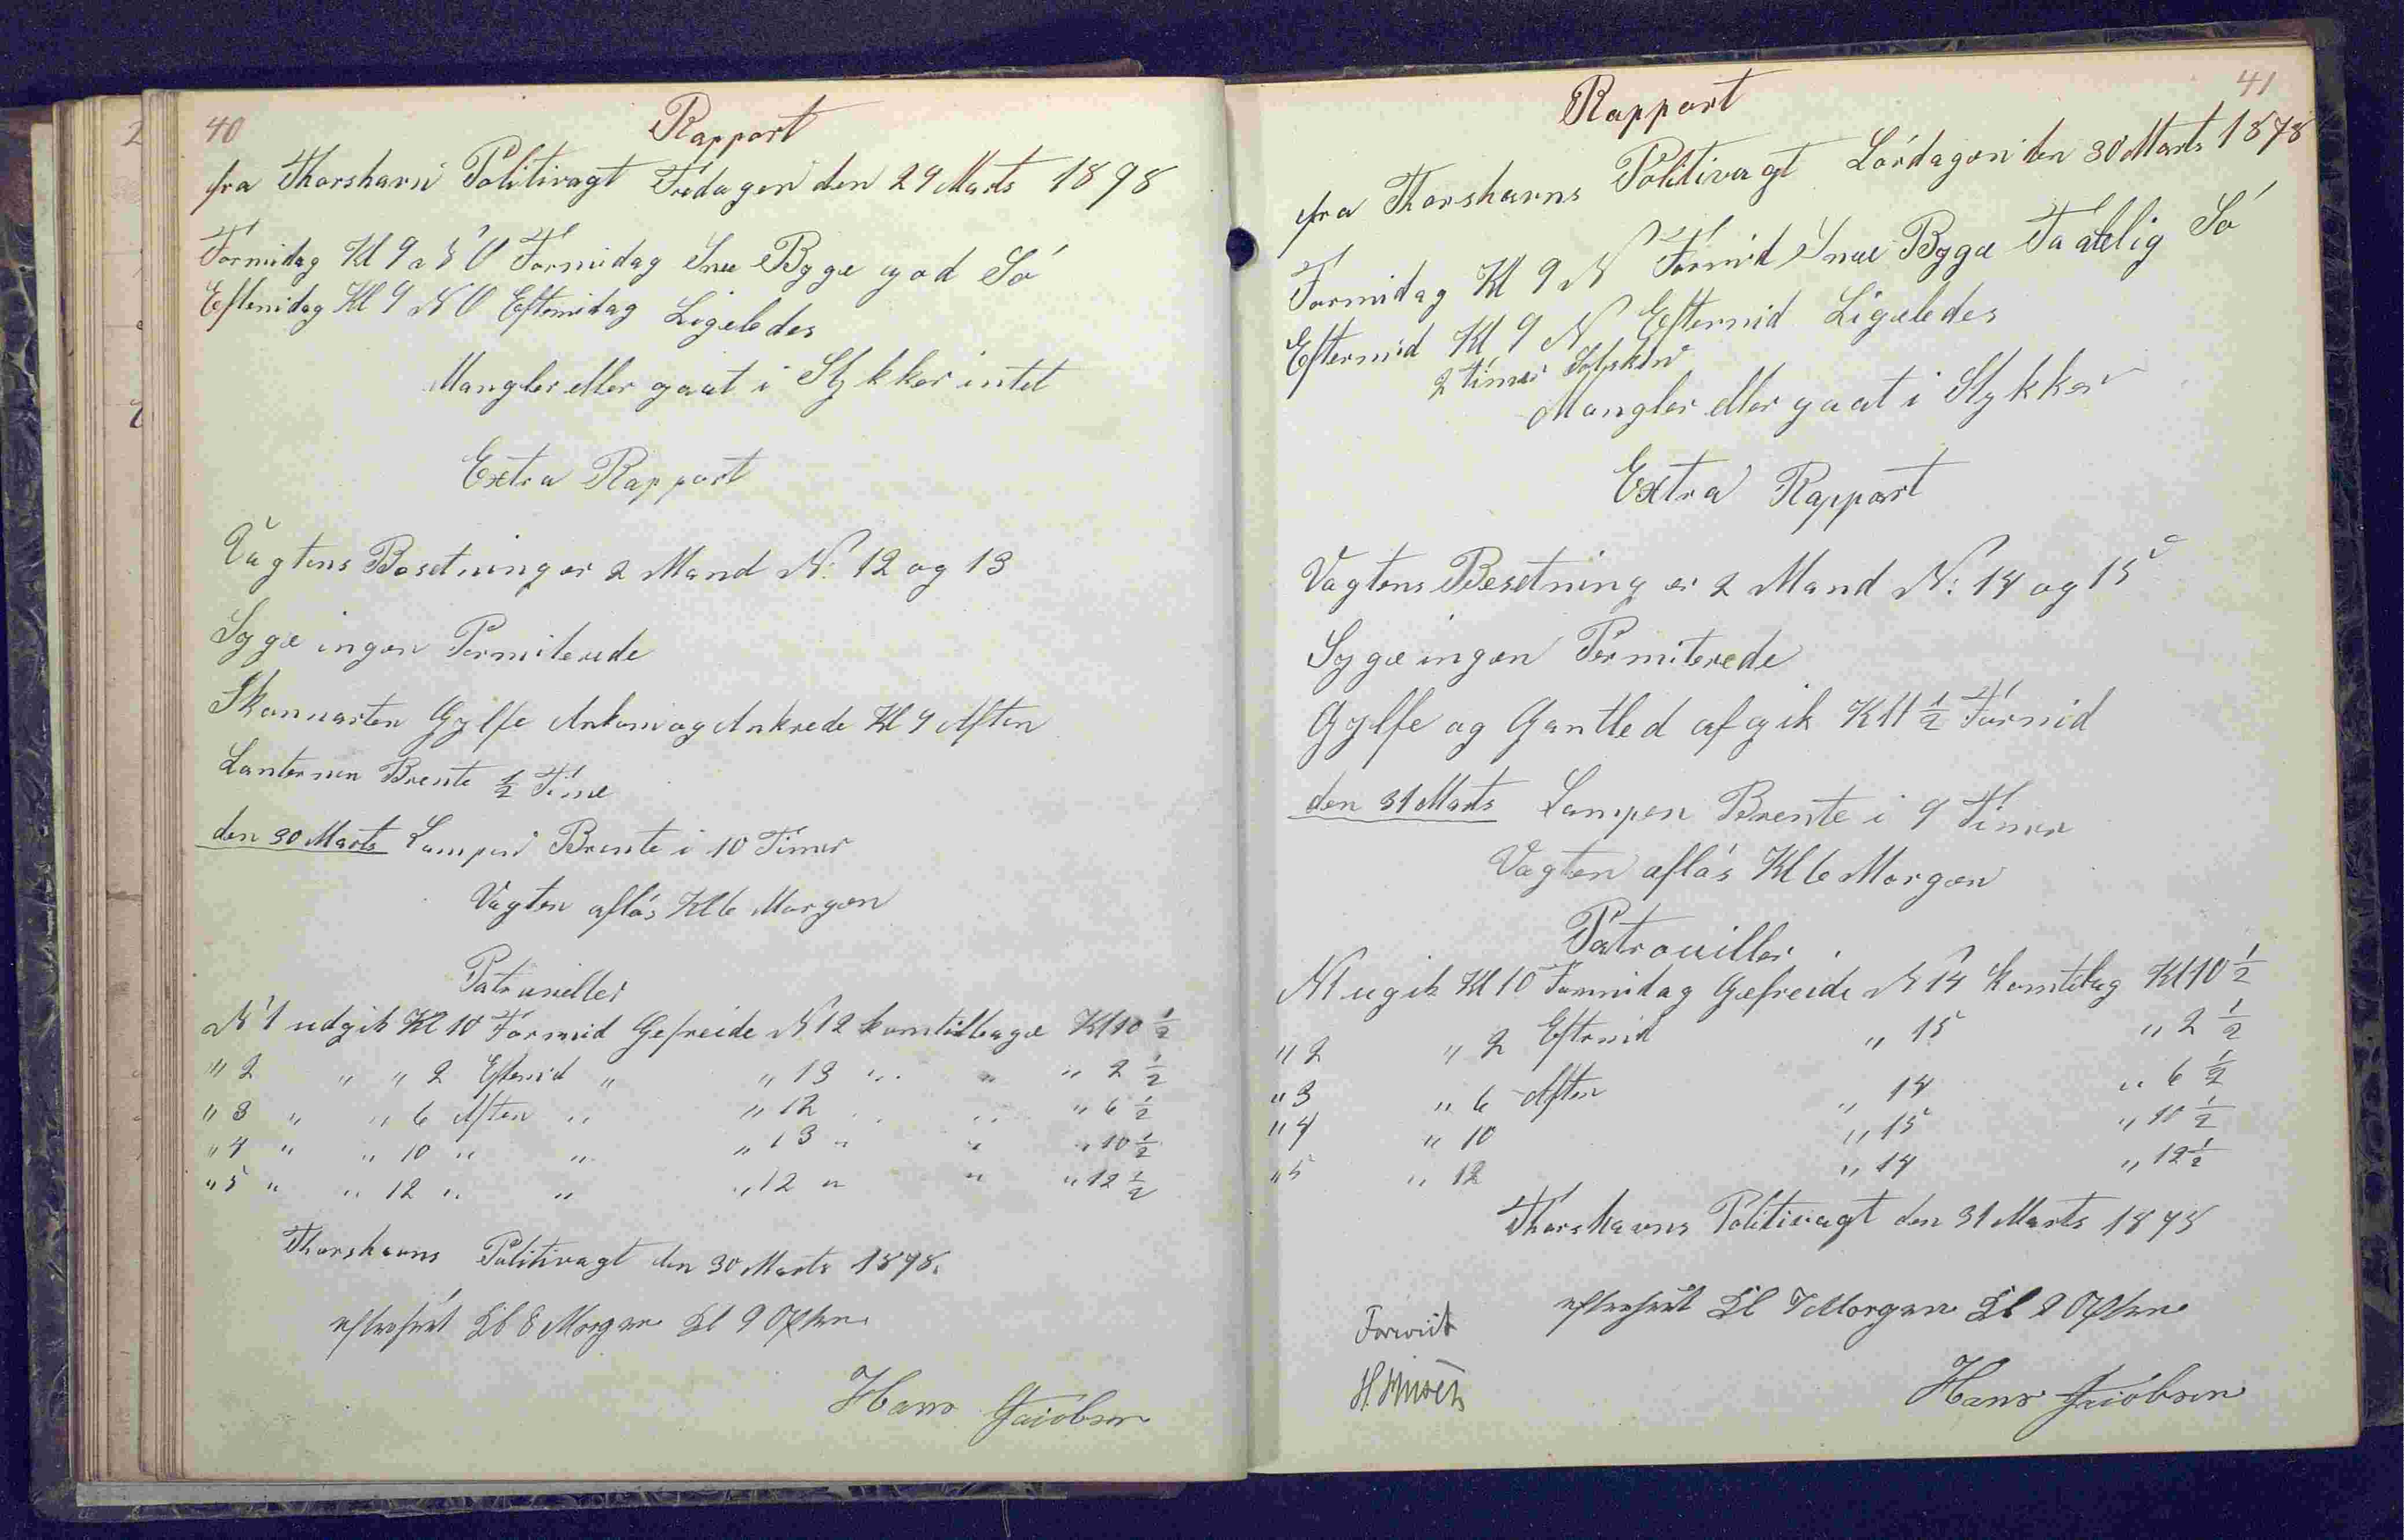 40
Rapport
fra Thorshavn Politivagt Fredagen den 29 Marts 1898
Formidag Kl 9 a N O Formidag Snee Byge god Só
Eftemidag Kl 9 N O Eftemidag Ligeledes
Mangler eller gaat i Stykker intet
Extra Rapport
Vagtens Besetning er 2 Mand N: 12 og 13
Syge ingen Permiterede
Skonnarten Gylfe Ankom og Ankrede Kl 9 Aften
Lanternen Brente 1/2 Time
den 30 Marts Lampen Brente i 10 Timer
Vagten aflós Kl 6 Morgen
Patruveller
N 1 udgik Kl 10 Formid Gefreide N 12 kom tilbage Kl 10 1/2
" 2 " " 2 Eftemid " " 13 " " " 2 1/2
" 3 " " 6 Aften " " 12 " " " 6 1/2
" 4 " " 10 " " " 13 " " " 10 1/2
" 5 " " 12 " " " 12 " " " 12 1/2
Thorshavns Politivagt den 30 Marts 1898.
efterseet Kl 8 Morgen Kl 9 Often
Hans Jacobsen
41
Rapport
fra Thorshavns Politivagt Lórdagen den 30 Marts 1898
Formidag Kl 9 N Formid Snee Byge Taatelig Só
Eftermid Kl 9 N Eftermid Ligeledes
2 timer Solskin
Mangler eller gaat i Stykker
Extra Rapport
Vagtens Besetning er 2 Mand N: 14 og 15
Syge ingen Permiterede
Gylfe og Gantled afgik Kl 1 1/2 Formid
den 31 Marts Lampen Brente i 9 Timer
Vagten aflós Kl 6 Morgen
Patrouiller
N 1 ugik Kl 10 Formidag Gefreide N 14 kom tilbag Kl 10 1/2
" 2 " 2 Eftemid " 15 " 2 1/2
" 3 " 6 Aften " 14 " 6 1/2
" 4 " 10 " 15 " 10 1/2
" 5 " 12 " 14 " 12 1/2
Thorshavns Politivagt den 31 Marts 1898
efterseet Kl 7 Morgen Kl 9 Often
Hans Jacobsen